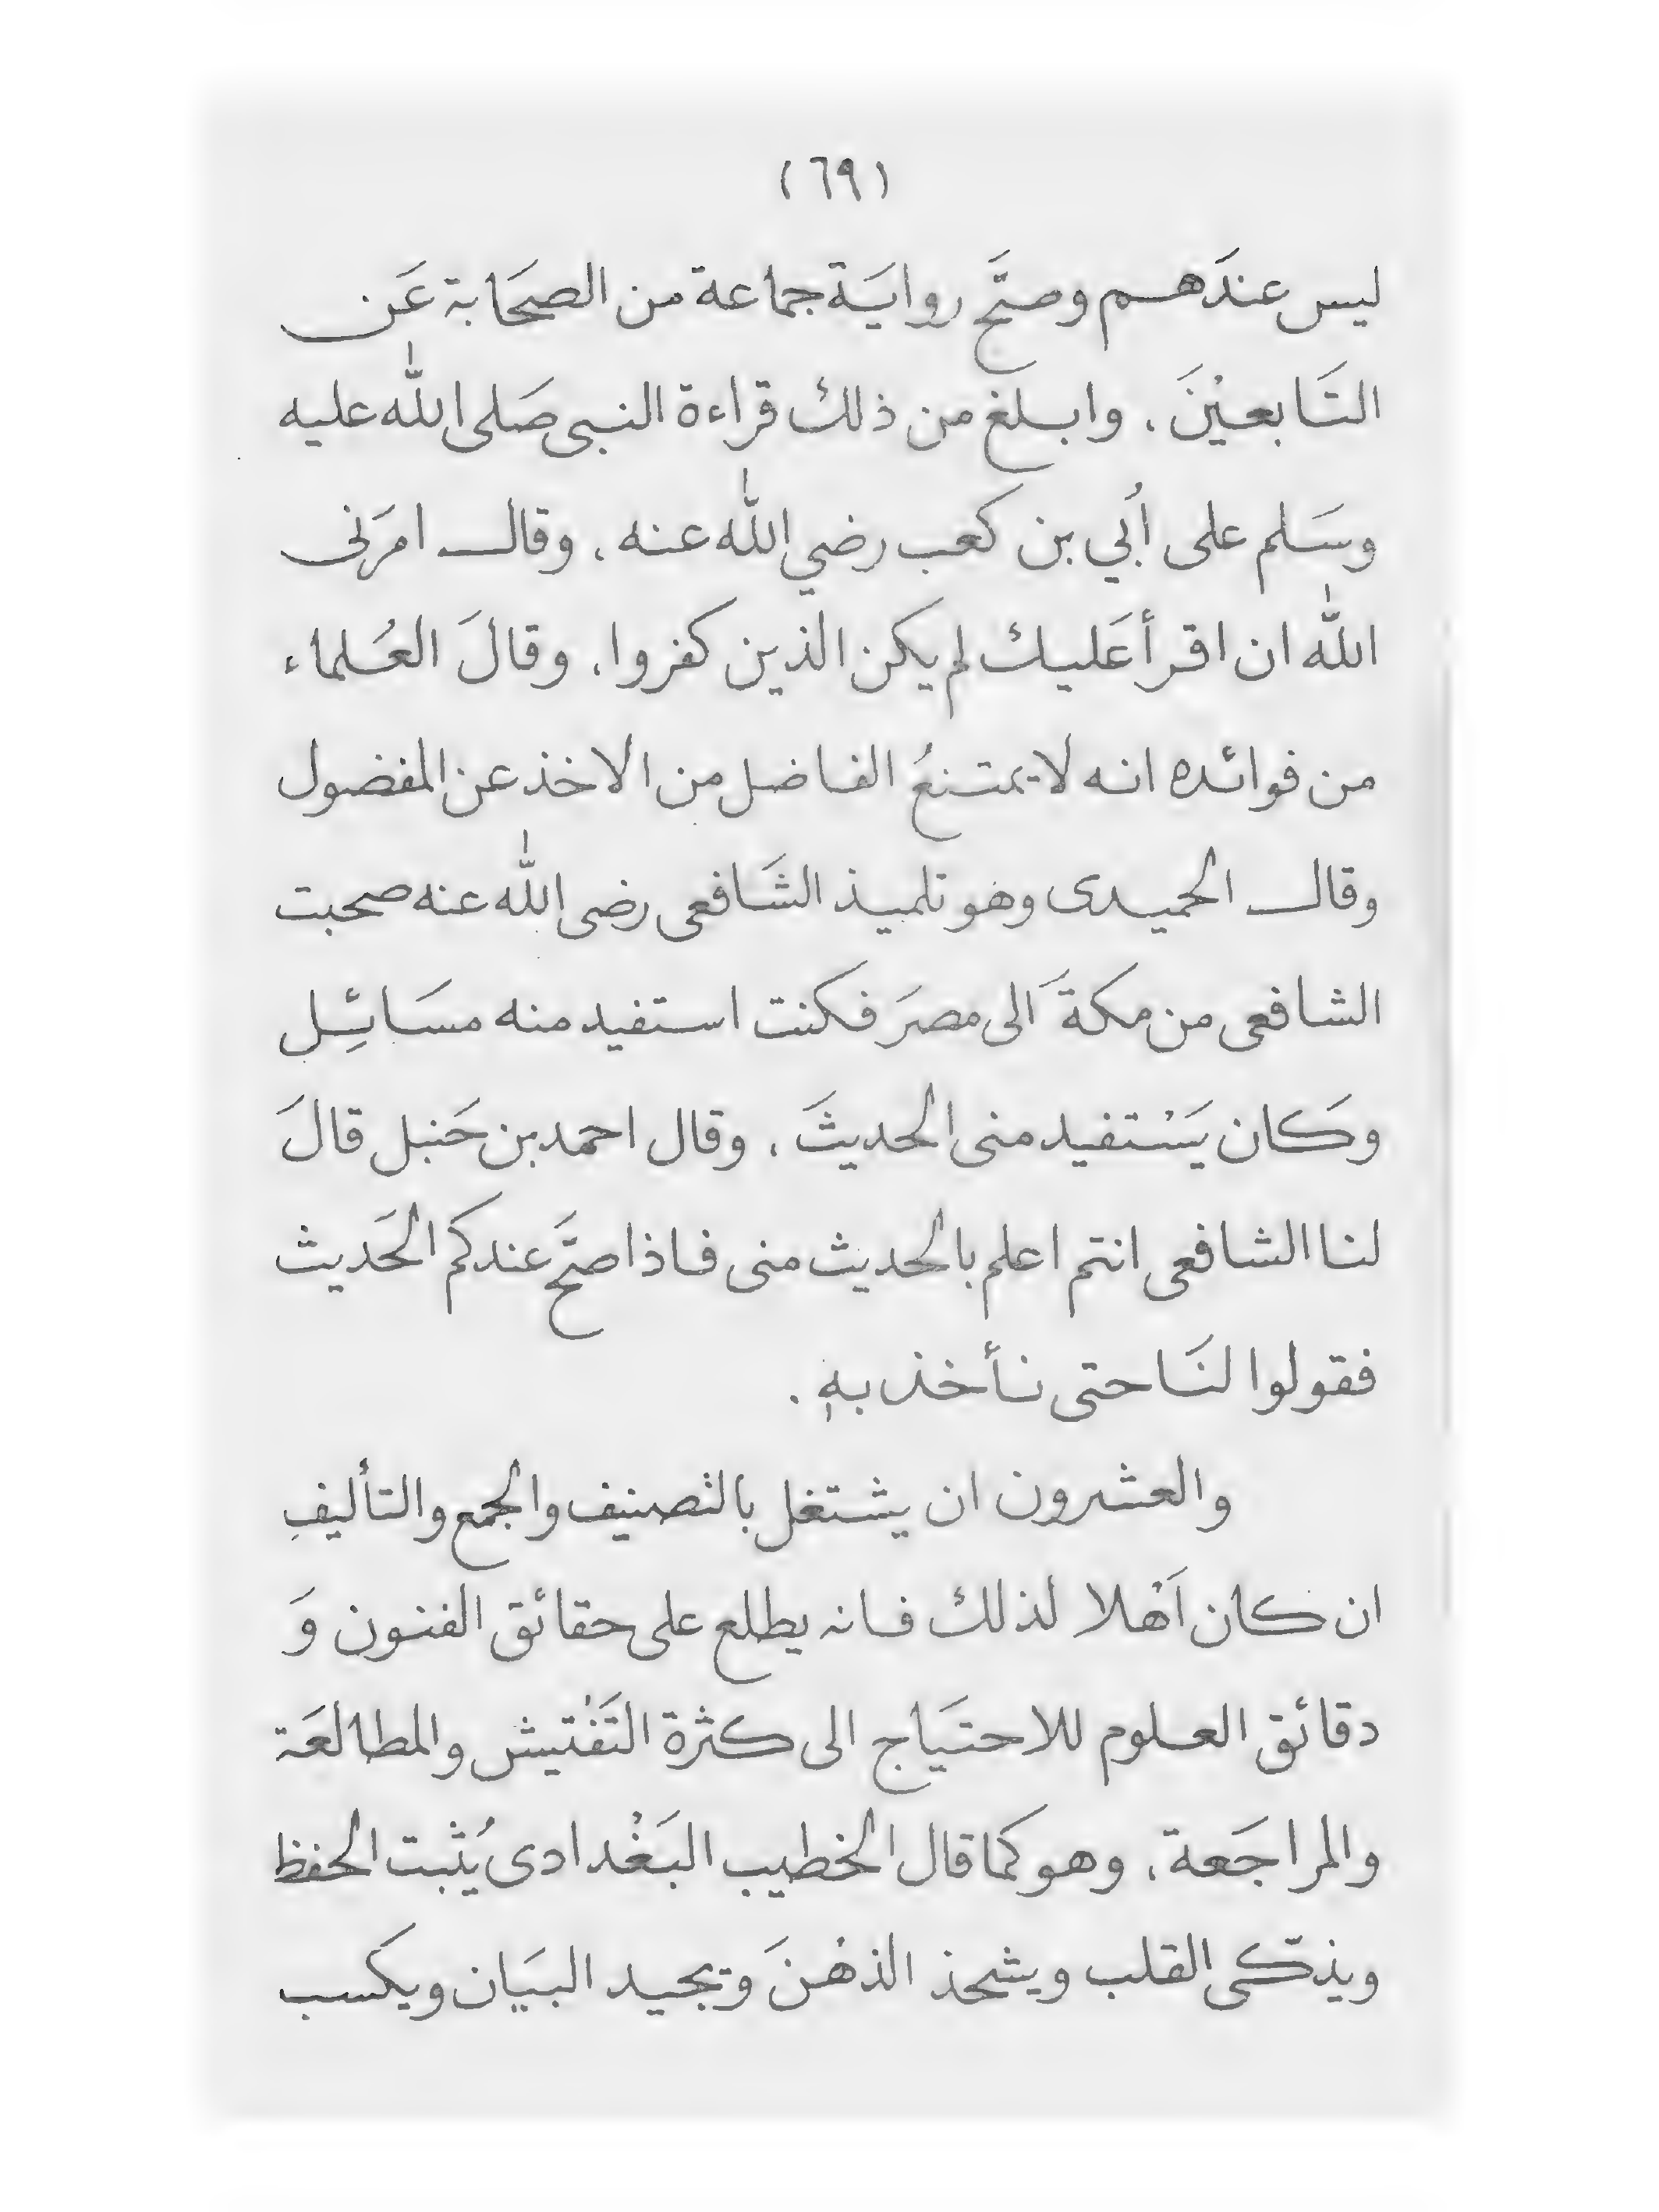 (٦٩)
ليس عندَهم وصحَّ روايَة جماعة من الصحَابة عَن
التَابعيْنَ، وابلغ من ذلك قراءة النبى صَلى الله عليه
وسَلم على أُبي بن كعب رضي الله عنه، وقال امرَنى
الله ان اقرأ عَليك لم يكن الذين كفروا، وقالَ العُلماء
من فوائده انه لا يمتنعُ الفاضل من الاخذ عن المفضول
وقال الحميدى وهو تلميذ الشَافعى رضى الله عنه صحبت
الشافعى من مكةَ الى مصرَ فكنت استفيد منه مسَائِل
وكَان يَسْتفيد منى الحديثَ، وقال احمد بن حَنبل قالَ
لنا الشافعى انتم اعلم بالحديث منى فاذا صحَّ عندكم الحَديث
فقولوا لنَا حتى نأخذ بهٖ.
والعشرون ان يشتغل بالتصنيف والجمع والتأليفِ
ان كان اَهْلا لذلك فانه يطلع على حقائق الفنون وَ
دقائق العلوم للاحتيَاج الى كثرة التَفْتيش والمطالعَة
والمراجَعة، وهو كما قال الخطيب البَغْدادى يُثبت الحفظ
ويذكّى القلب ويشحذ الذهْنَ وَيجيد البيَان ويكسب